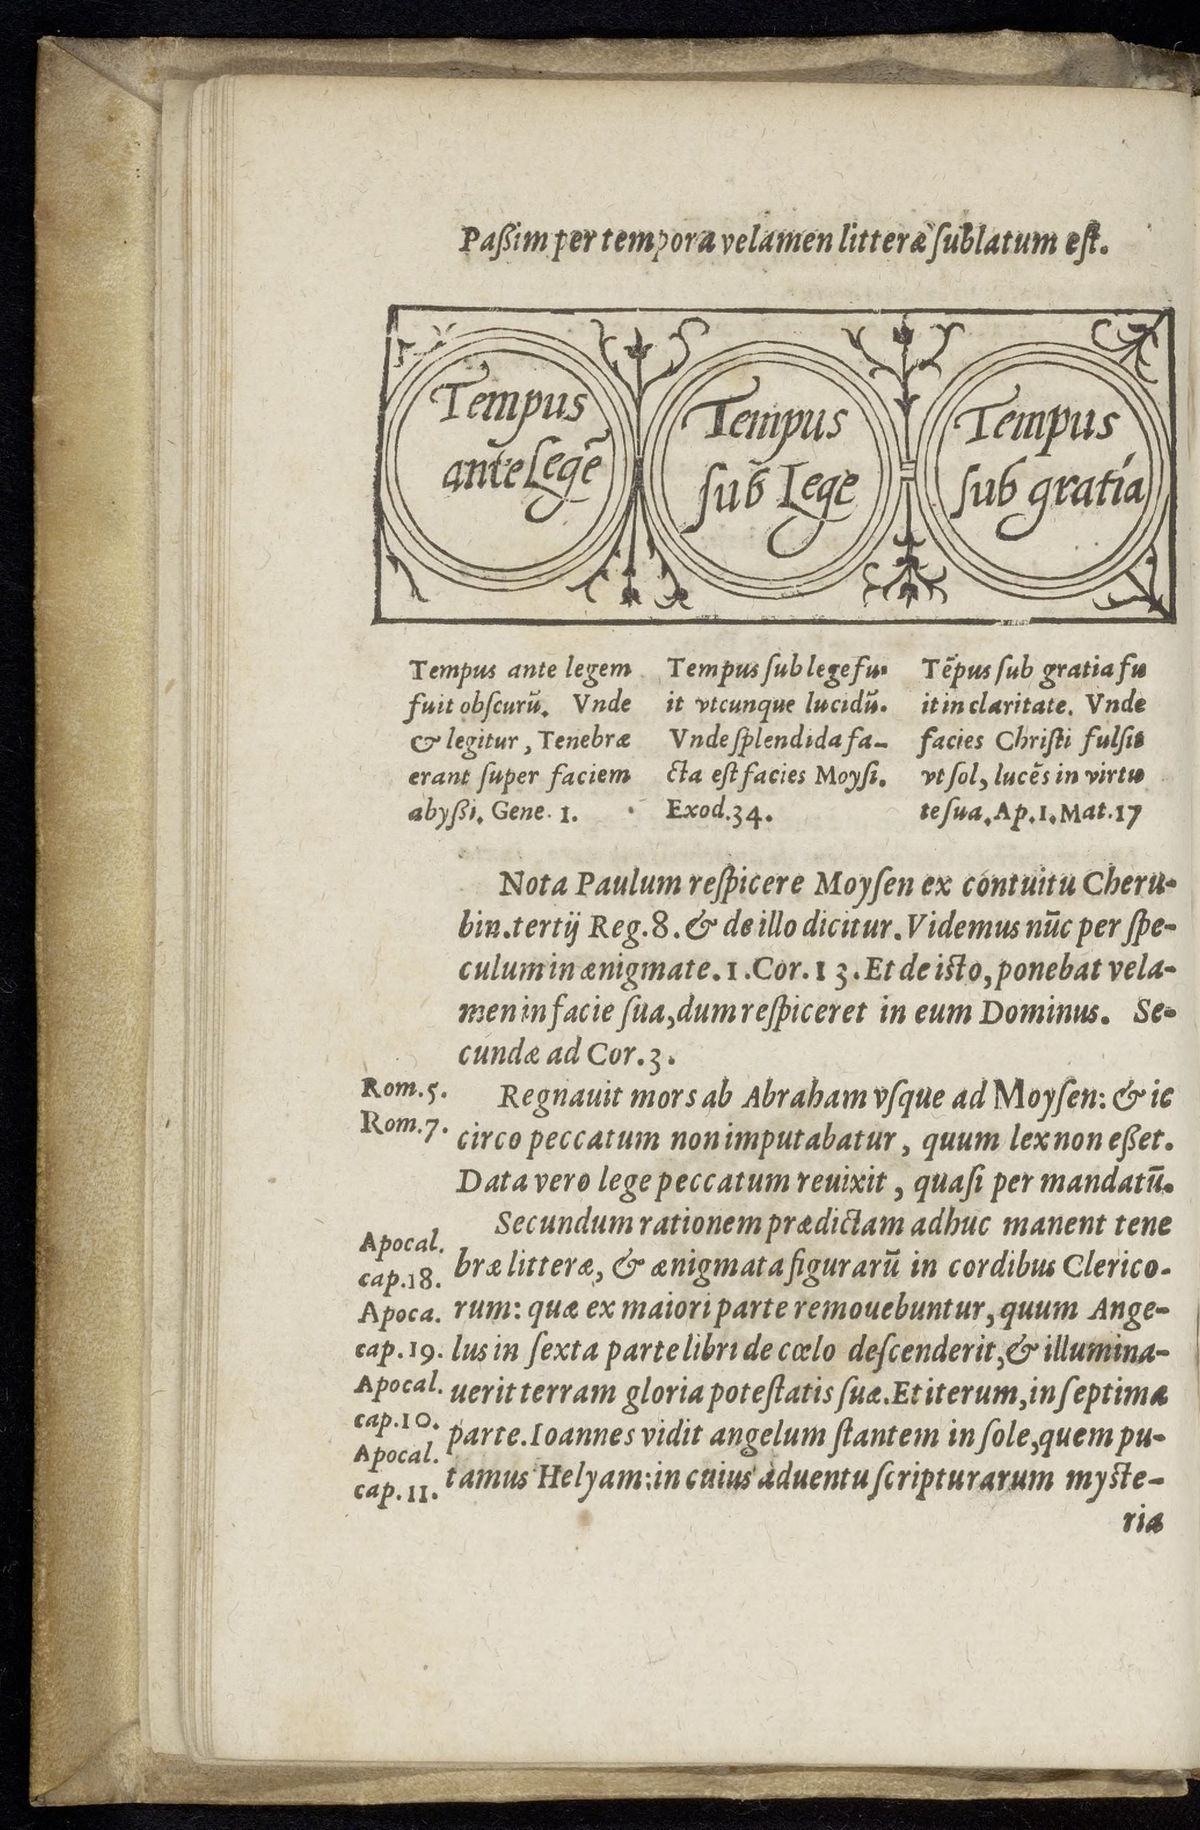 Paßim per tempora velamen litteræ ſublatum eſt.
Tempus
ante Legē
Tempus
ſub Lege
Tempus
ſub gratia
Tempus ante legem
fuit obſcurū. Vnde
& legitur, Tenebræ
erant ſuper faciem
abyßi. Gene. 1.
Tempus ſub lege fu-
it vtcunque lucidū.
Vnde ſplendida fa-
cta eſt facies Moyſi.
Exod.34.
Tēpus ſub gratia fu
it in claritate. Vnde
facies Chriſti fulſit
vt ſol, lucēs in virtu
te ſua. Ap.1. Mat.17
Nota Paulum reſpicere Moyſen ex contuitu Cheru-
bin. tertij Reg.8. & de illo dicitur. Videmus nūc per ſpe-
culum in ænigmate. 1. Cor. 13. Et de iſto, ponebat vela-
men in facie ſua, dum reſpiceret in eum Dominus. Se-
cundæ ad Cor.3.
Rom.5.
Rom.7.
Regnauit mors ab Abraham vſque ad Moyſen: & ic
circo peccatum non imputabatur, quum lex non eßet.
Data vero lege peccatum reuixit, quaſi per mandatū.
Secundum rationem prædictam adhuc manent tene
bræ litteræ, & ænigmata figurarū in cordibus Clerico-
rum: quæ ex maiori parte remouebuntur, quum Ange-
lus in ſexta parte libri de cœlo deſcenderit, & illumina-
uerit terram gloria poteſtatis ſuæ. Et iterum, in ſeptima
parte. Ioannes vidit angelum ſtantem in ſole, quem pu-
tamus Helyam: in cuius aduentu ſcripturarum myſte-
ria
Apocal.
cap.18.
Apoca.
cap.19.
Apocal.
cap.10.
Apocal.
cap.11.